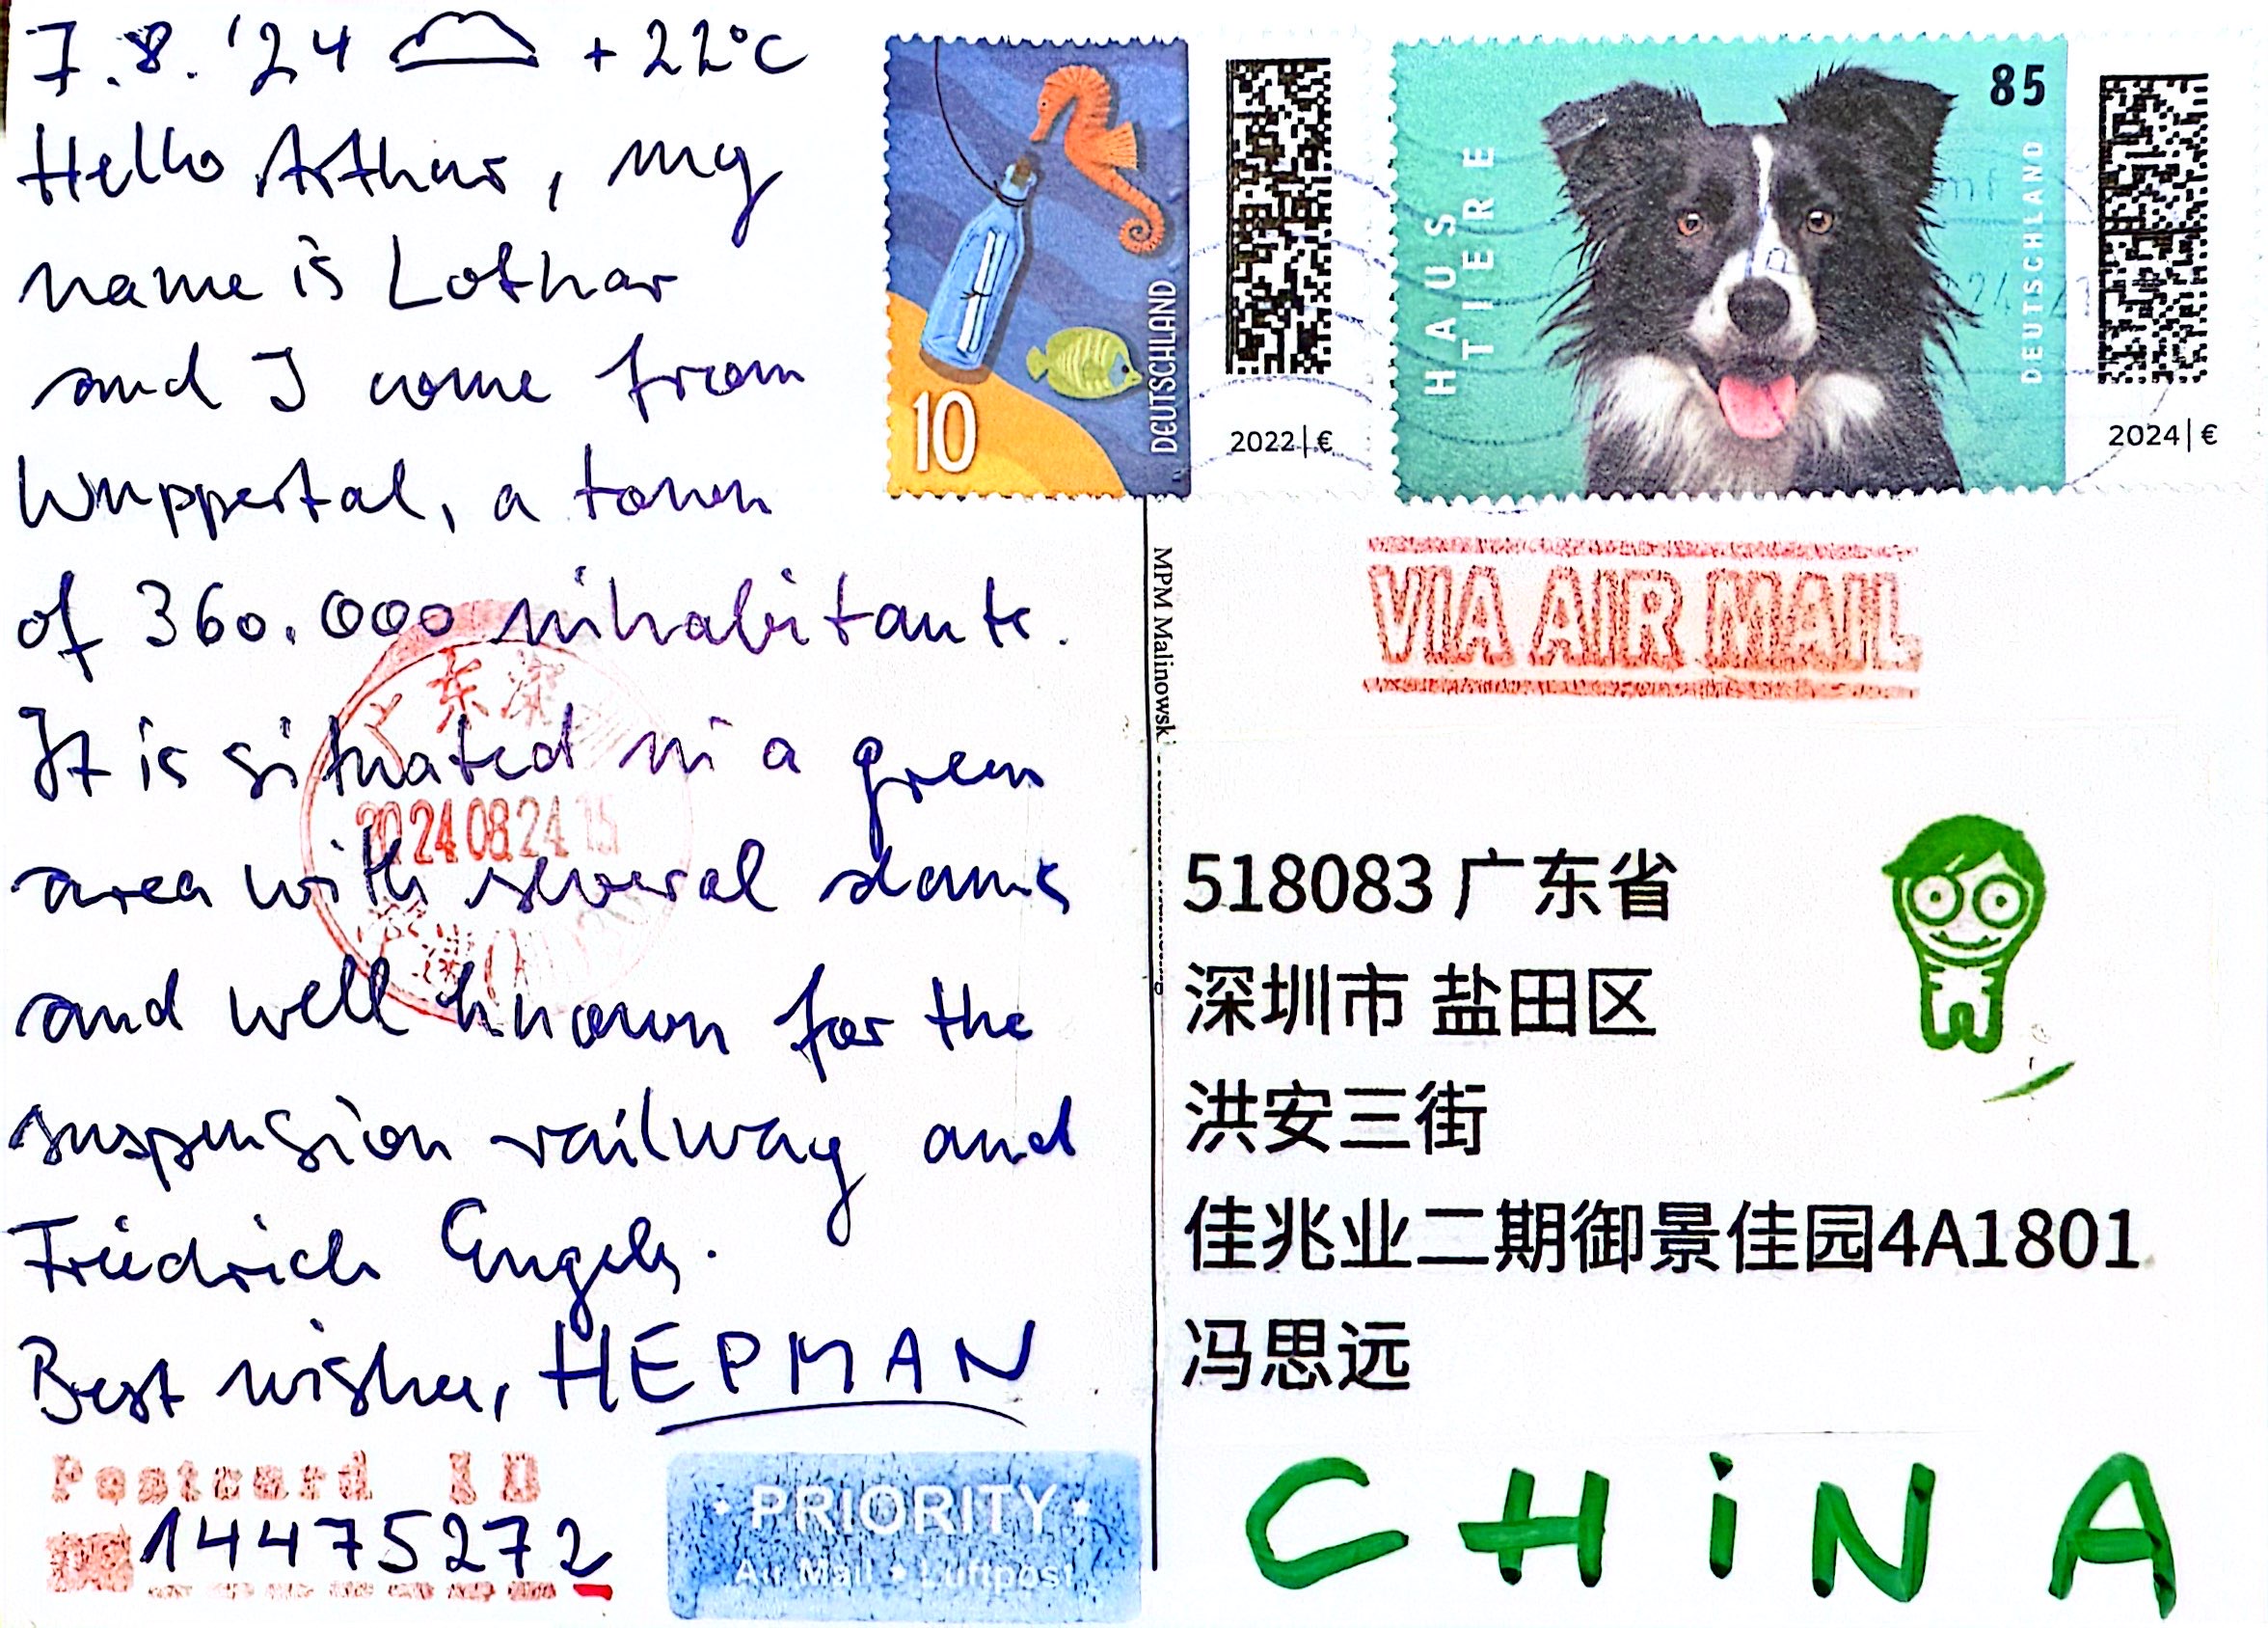 7.8.'24 +22°C
Hello Arthur, my
name is Lothar
and I come from
Wuppertal, a town
of 360.000 inhabitants.
It is situated in a green
area with several dams
and well known for the
suspension railway and
Friedrich Engels.
Best wishes, HEPMAN
Postcard ID
14475272
PRIORITY
Air Mail • Luftpost
10
DEUTSCHLAND
2022 | €
HAUS
TIERE
85
DEUTSCHLAND
2024 | €
VIA AIR MAIL
MPM Malinowsk
东深
2024.08.24 15
518083 广东省
深圳市 盐田区
洪安三街
佳兆业二期御景佳园4A1801
冯思远
CHiNA